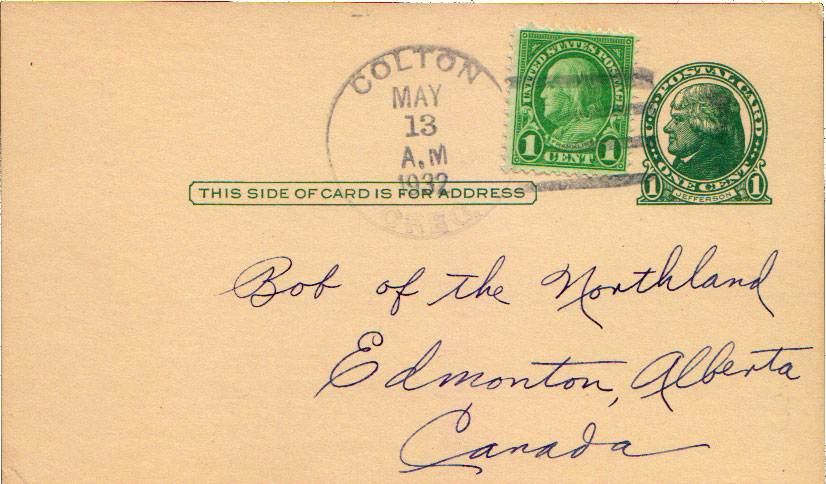 COLTON
MAY
13
A.M
1932
OREG.
UNITED STATES POSTAGE
FRANKLIN
1 CENT 1
U.S. POSTAL CARD
ONE CENT
1 JEFFERSON 1
THIS SIDE OF CARD IS FOR ADDRESS
Bob of the Northland
Edmonton, Alberta
Canada